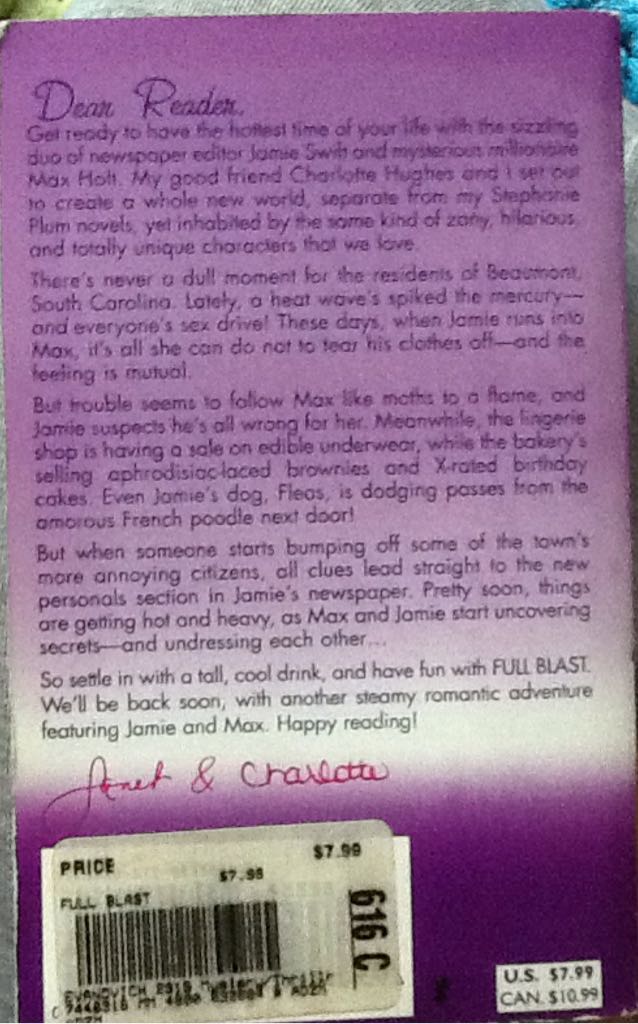 Dear Reader,
Get ready to have the hottest time of your life with the sizzling
duo of newspaper editor Jamie Swift and mysterious millionaire
Max Holt. My good friend Charlotte Hughes and I set out
to create a whole new world, separate from my Stephanie
Plum novels, yet inhabited by the same kind of zany, hilarious,
and totally unique characters that we love.
There's never a dull moment for the residents of Beaumont,
South Carolina. Lately, a heat wave's spiked the mercury—
and everyone's sex drive! These days, when Jamie runs into
Max, it's all she can do not to tear his clothes off—and the
feeling is mutual.
But trouble seems to follow Max like moths to a flame, and
Jamie suspects he's all wrong for her. Meanwhile, the lingerie
shop is having a sale on edible underwear, while the bakery's
selling aphrodisiac-laced brownies and X-rated birthday
cakes. Even Jamie's dog, Fleas, is dodging passes from the
amorous French poodle next door!
But when someone starts bumping off some of the town's
more annoying citizens, all clues lead straight to the new
personals section in Jamie's newspaper. Pretty soon, things
are getting hot and heavy, as Max and Jamie start uncovering
secrets—and undressing each other...
So settle in with a tall, cool drink, and have fun with FULL BLAST.
We'll be back soon, with another steamy romantic adventure
featuring Jamie and Max. Happy reading!
Janet & Charlotte
PRICE $7.99
$7.99
FULL BLAST
616 C
EVANOVICH
U.S. $7.99
CAN. $10.99